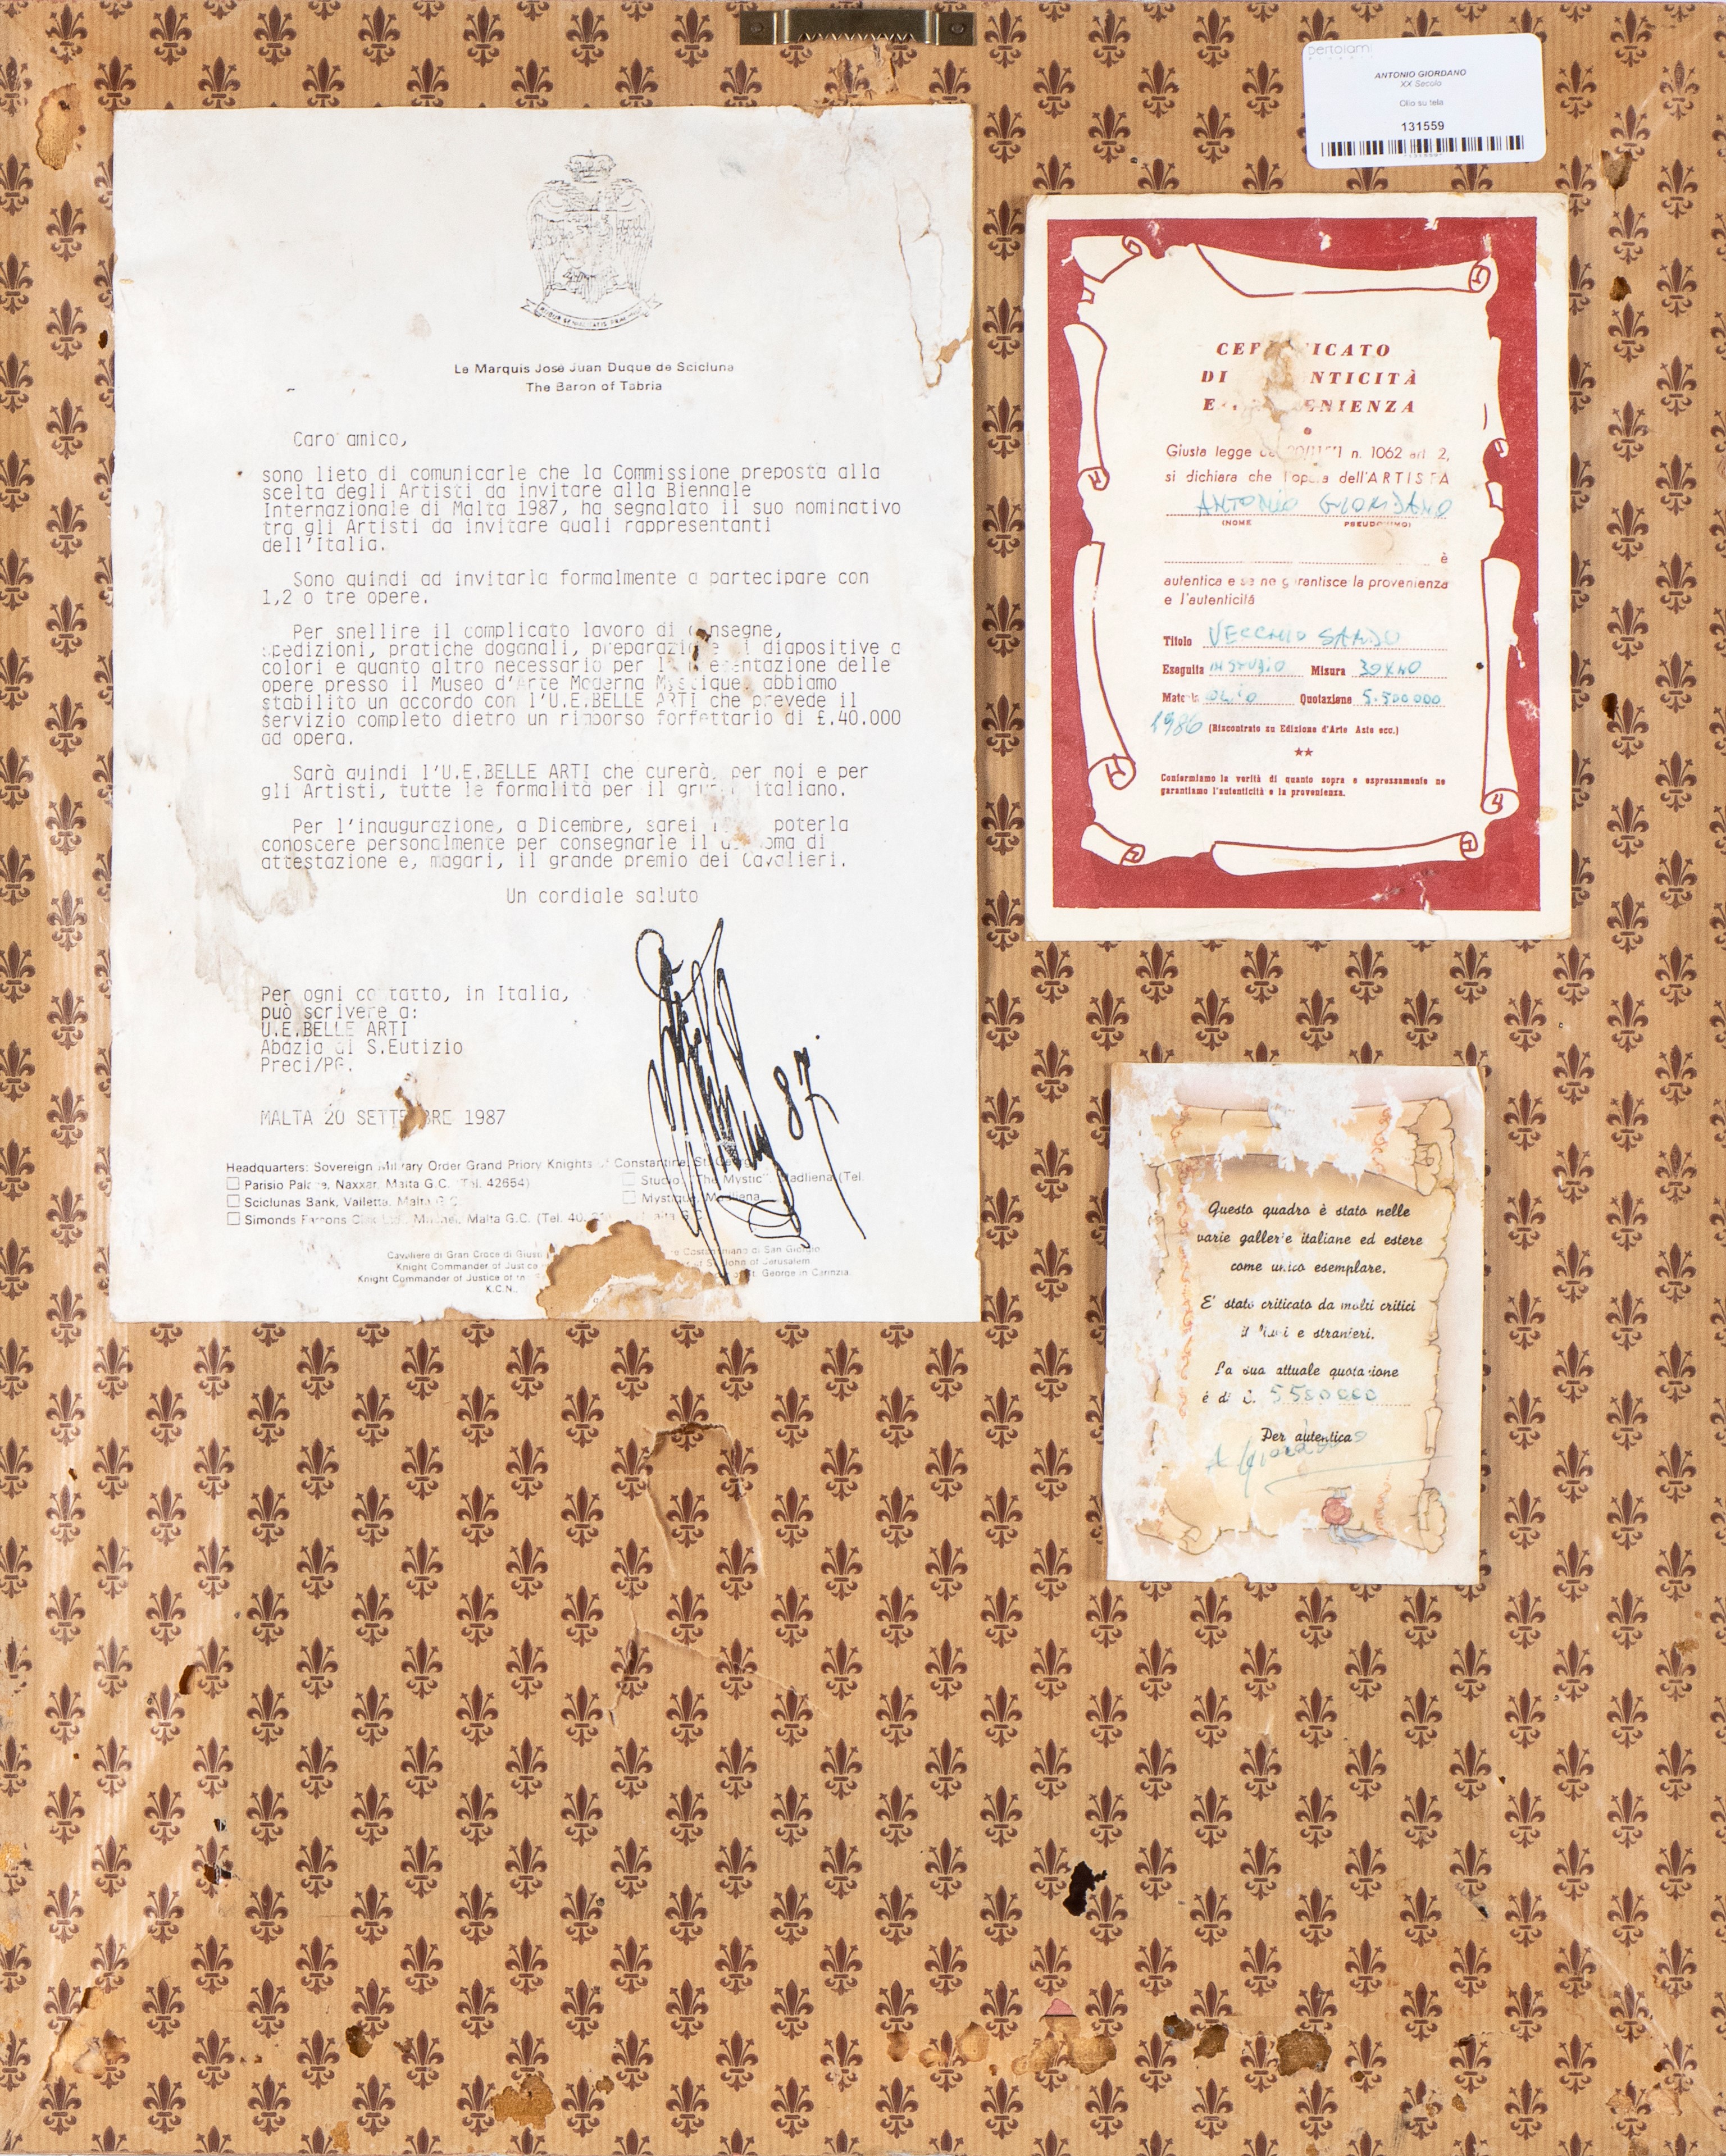 Le Marquis José Juan Duque de Scicluna
The Baron of Tabria
Caro amico,
sono lieto di comunicarle che la Commissione preposta alla
scelta degli Artisti da invitare alla Biennale
Internazionale di Malta 1987, ha segnalato il suo nominativo
tra gli Artisti da invitare quali rappresentanti
dell'Italia.
Sono quindi ad invitarla formalmente a partecipare con
1,2 o tre opere.
Per snellire il complicato lavoro di
pedizioni, pratiche doganali, diapositive a
colori e quanto altro necessario per delle
opere presso il Museo d'Arte Moderna abbiamo
stabilito un accordo con l'U.E.BELLE ARTI che prevede il
servizio completo dietro un rimborso forfettario di £.40.000
ad opera.
Sarà quindi l'U.E.BELLE ARTI che curerà, per noi e per
gli Artisti, tutte le formalità per il italiano.
Per l'inaugurazione, a Dicembre, sarei poterla
conoscere personalmente per consegnarle il di
attestazione e, magari, il grande premio dei Cavalieri.
Un cordiale saluto
87.
Per ogni contatto, in Italia,
può scrivere a:
U.E.BELLE ARTI
Abazia di S.Eutizio
Preci/PG.
MALTA 20 1987
Headquarters: Sovereign Military Order Grand Priory Knights Constantine, St.
Parisio Naxxar, Malta G.C. Tel. 42654)
Studio, "The Mystic", Madliena (Tel.
Sciclunas Bank, Valletta, Malta G.C.
Simonds Malta G.C. (Tel.
Cavaliere di Gran Croce di
Costantiniano di San Giorgio
Knight Commander of
of St. John of Jerusalem
Knight Commander of Justice of
St. George in Carinzia.
K.C.N.
ANTONIO GIORDANO
XX Secolo
Olio su tela
131559
DI
Giusta legge n. 1062 art. 2,
si dichiara che l'opera dell'ARTISTA
ANTONIO GIORDANO
(NOME PSEUDONIMO)
è
autentica e se ne garantisce la provenienza
e l'autenticità
Titolo VECCHIO SARDO
Eseguita IN STUDIO Misura 30X40
Quotazione 5.500000
1986 (Riscontrato su Edizione d'Arte Aste ecc.)
★★
Confermiamo la verità di quanto sopra e espressamente ne
garantiamo l'autenticità e la provenienza.
Questo quadro è stato nelle
varie gallerie italiane ed estere
come unico esemplare.
E' stato criticato da molti critici
e stranieri.
La sua attuale quotazione
è di £. 5500000
Per autentica
A Giordano